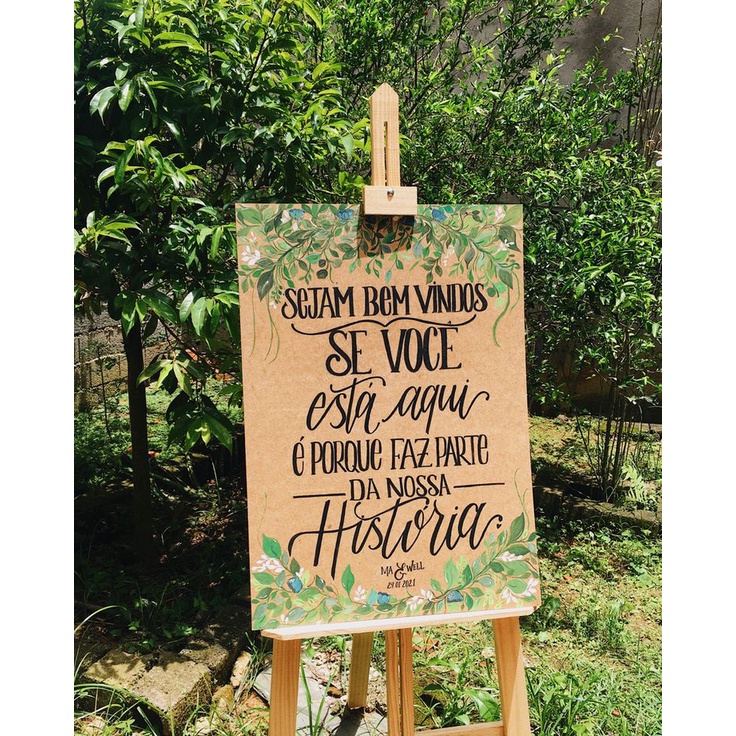 SEJAM BEM VINDOS
SE VOCÊ
está aqui
é PORQUE FAZ PARTE
DA NOSSA
História
MA & WELL
29.01.2021